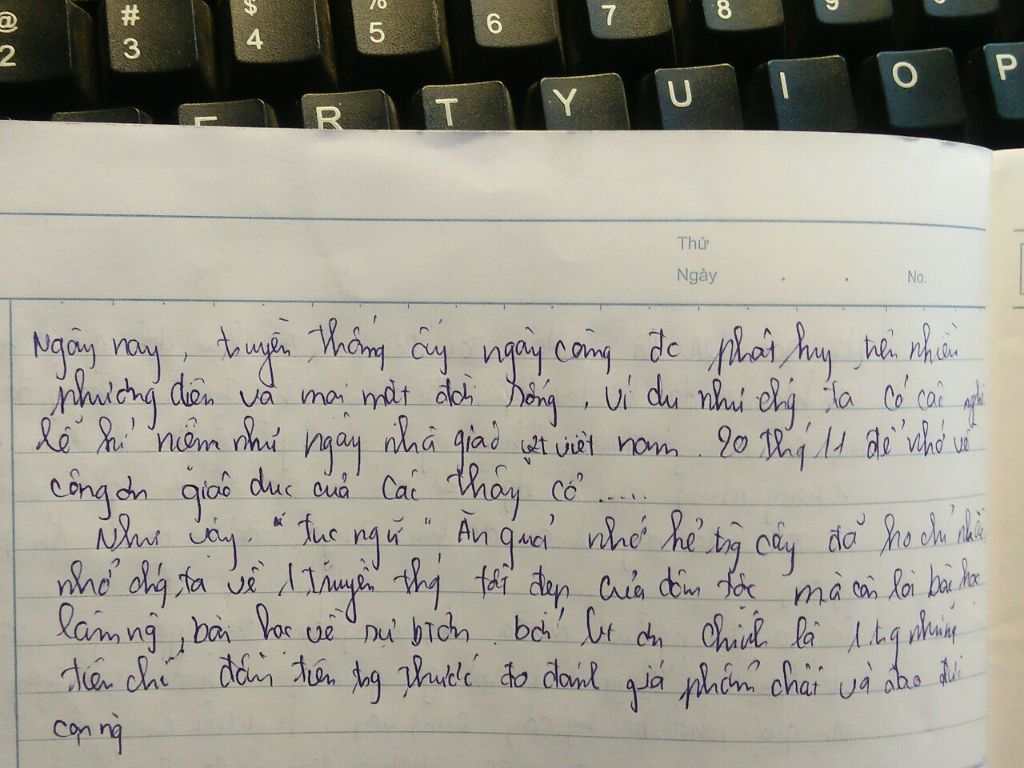 @ # $ % 6 7 8 9
2 3 4 5
E R T Y U I O P
Thứ
Ngày . . No.
Ngày nay, truyền thống ấy ngày càng đc phát huy trên nhiều
phương diện và mọi mặt đời sống, ví dụ như chg ta có các nghi
lễ kỉ niệm như ngày nhà giáo việt nam. 20 thg 11 để nhớ về
công ơn giáo dục của các thầy cô .....
Như vậy. " tục ngữ " Ăn quả nhớ kẻ tg cây đã ko chỉ nhắc
nhở chg ta về 1 truyền thg tốt đẹp của dân tộc mà còn là bài học
làm ng, bài học về sự biết ơn. bởi biết ơn chính là 1 tg những
tiêu chí đầu tiên tg thước đo đánh giá phẩm chất và đạo đức
con ng